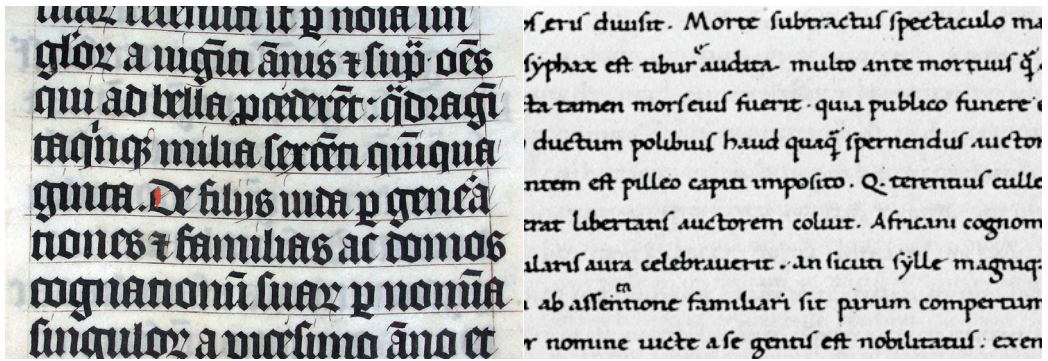 suaꝝ recensiti st̄ ꝑ noīa sin
gl̓oꝝ a uiginti ānis ⁊ sup̄ · oēs
qui ad bella ꝓcederēt : qᷓdragīt
taqͥnqꝫ milia sexcēti quīqua
ginta . De filijs iuda ꝑ gene͛a
tiones ⁊ familias ac domos
cognationū suaꝝ ꝑ nomīa
singuloꝝ a uicesimo āno et
eris duxsit . Morte subtractus spectaculo
syphax est tibur audita . multo ante mortuus q̄
tamen mors eius fuerit · quia publico funere
ductum polibius haud quaq̄ spernendus auctor
est pilleo capiti imposito . Q. terentius culle
libertatis auctorem coluit . Africani cognom
aura celebrauerit . an sicuti sylle magniq
ab assentatione familiari sit parum compertum
nomine uicte a se gentis est nobilitatus : exem